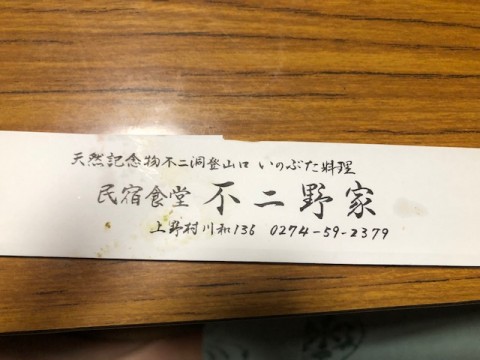 天然記念物不二洞登山口 いのぶた料理
民宿食堂 不二野家
上野村川和136 0274-59-2379